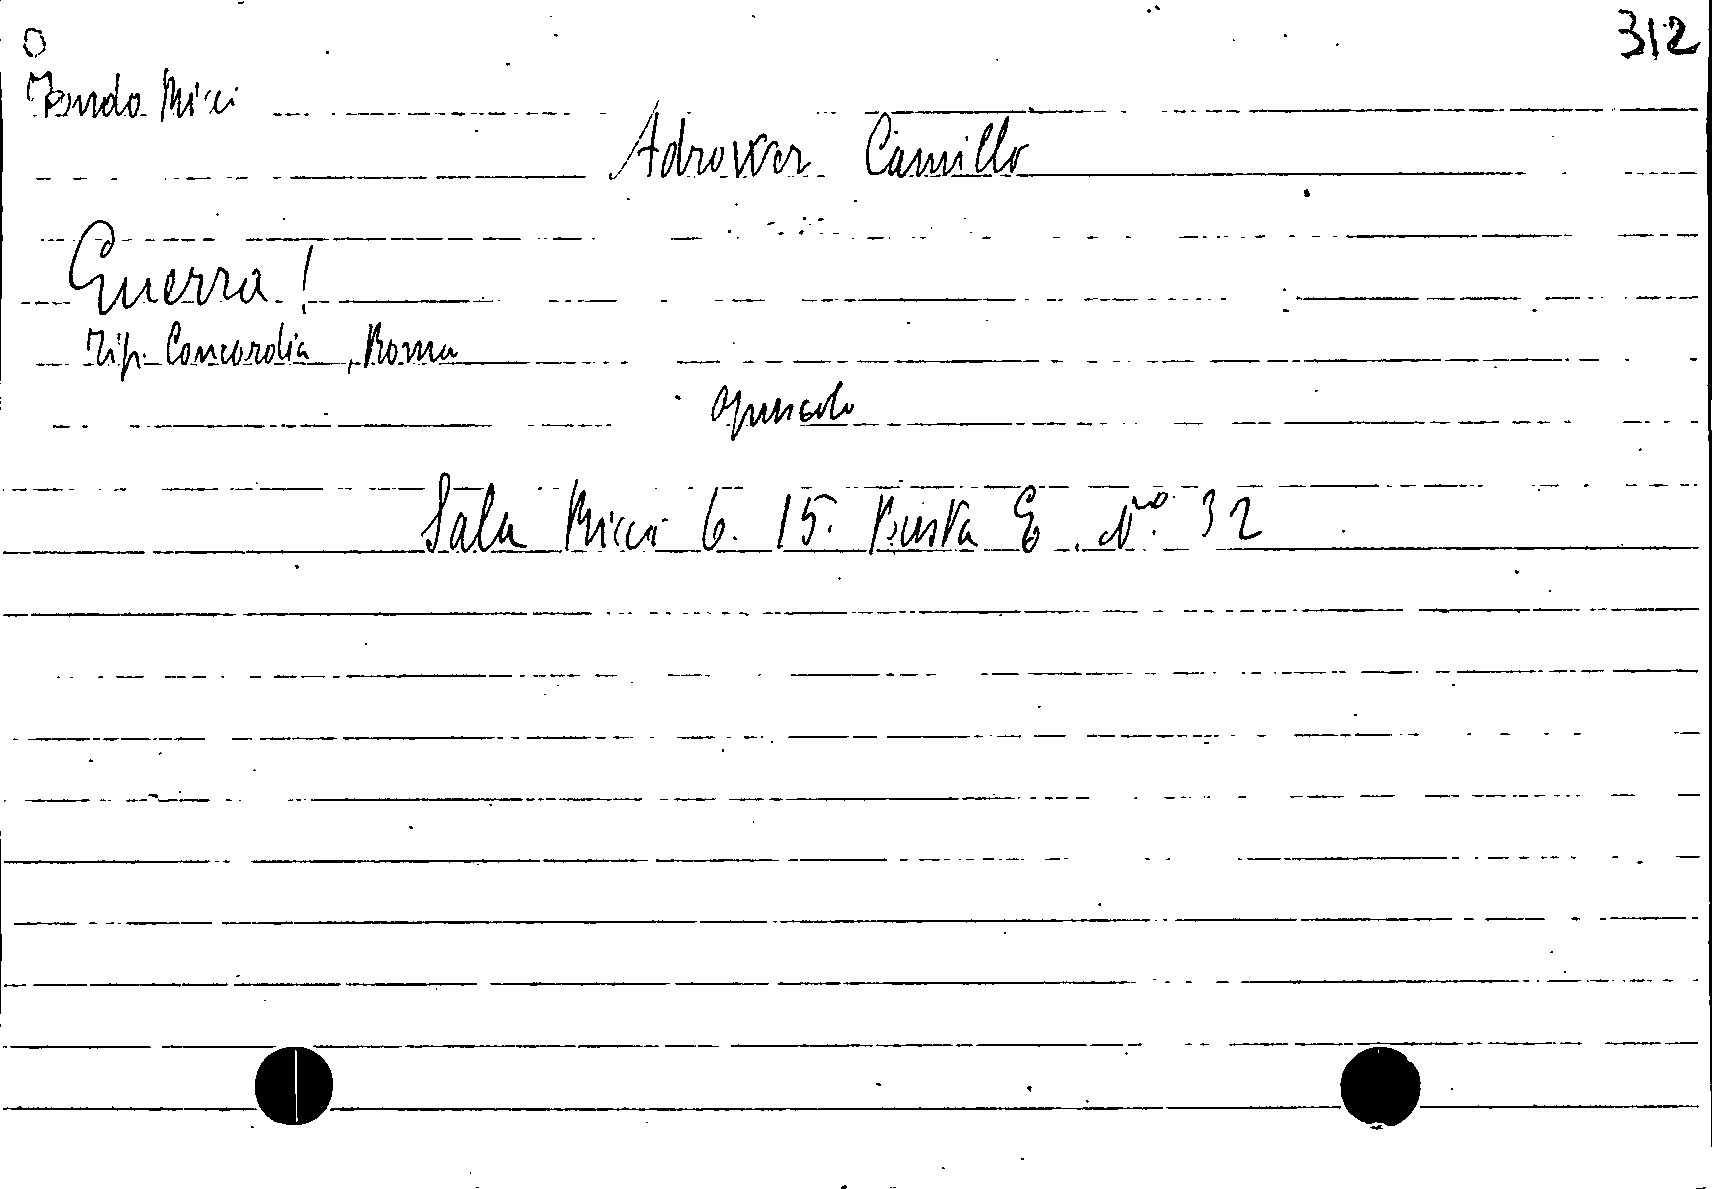 O 312
Fondo Ricci
Adrower Camillo
Guerra!
Tip. Concordia, Roma
opuscolo
Sala Ricci 6. 15. Busta E. N.º 32